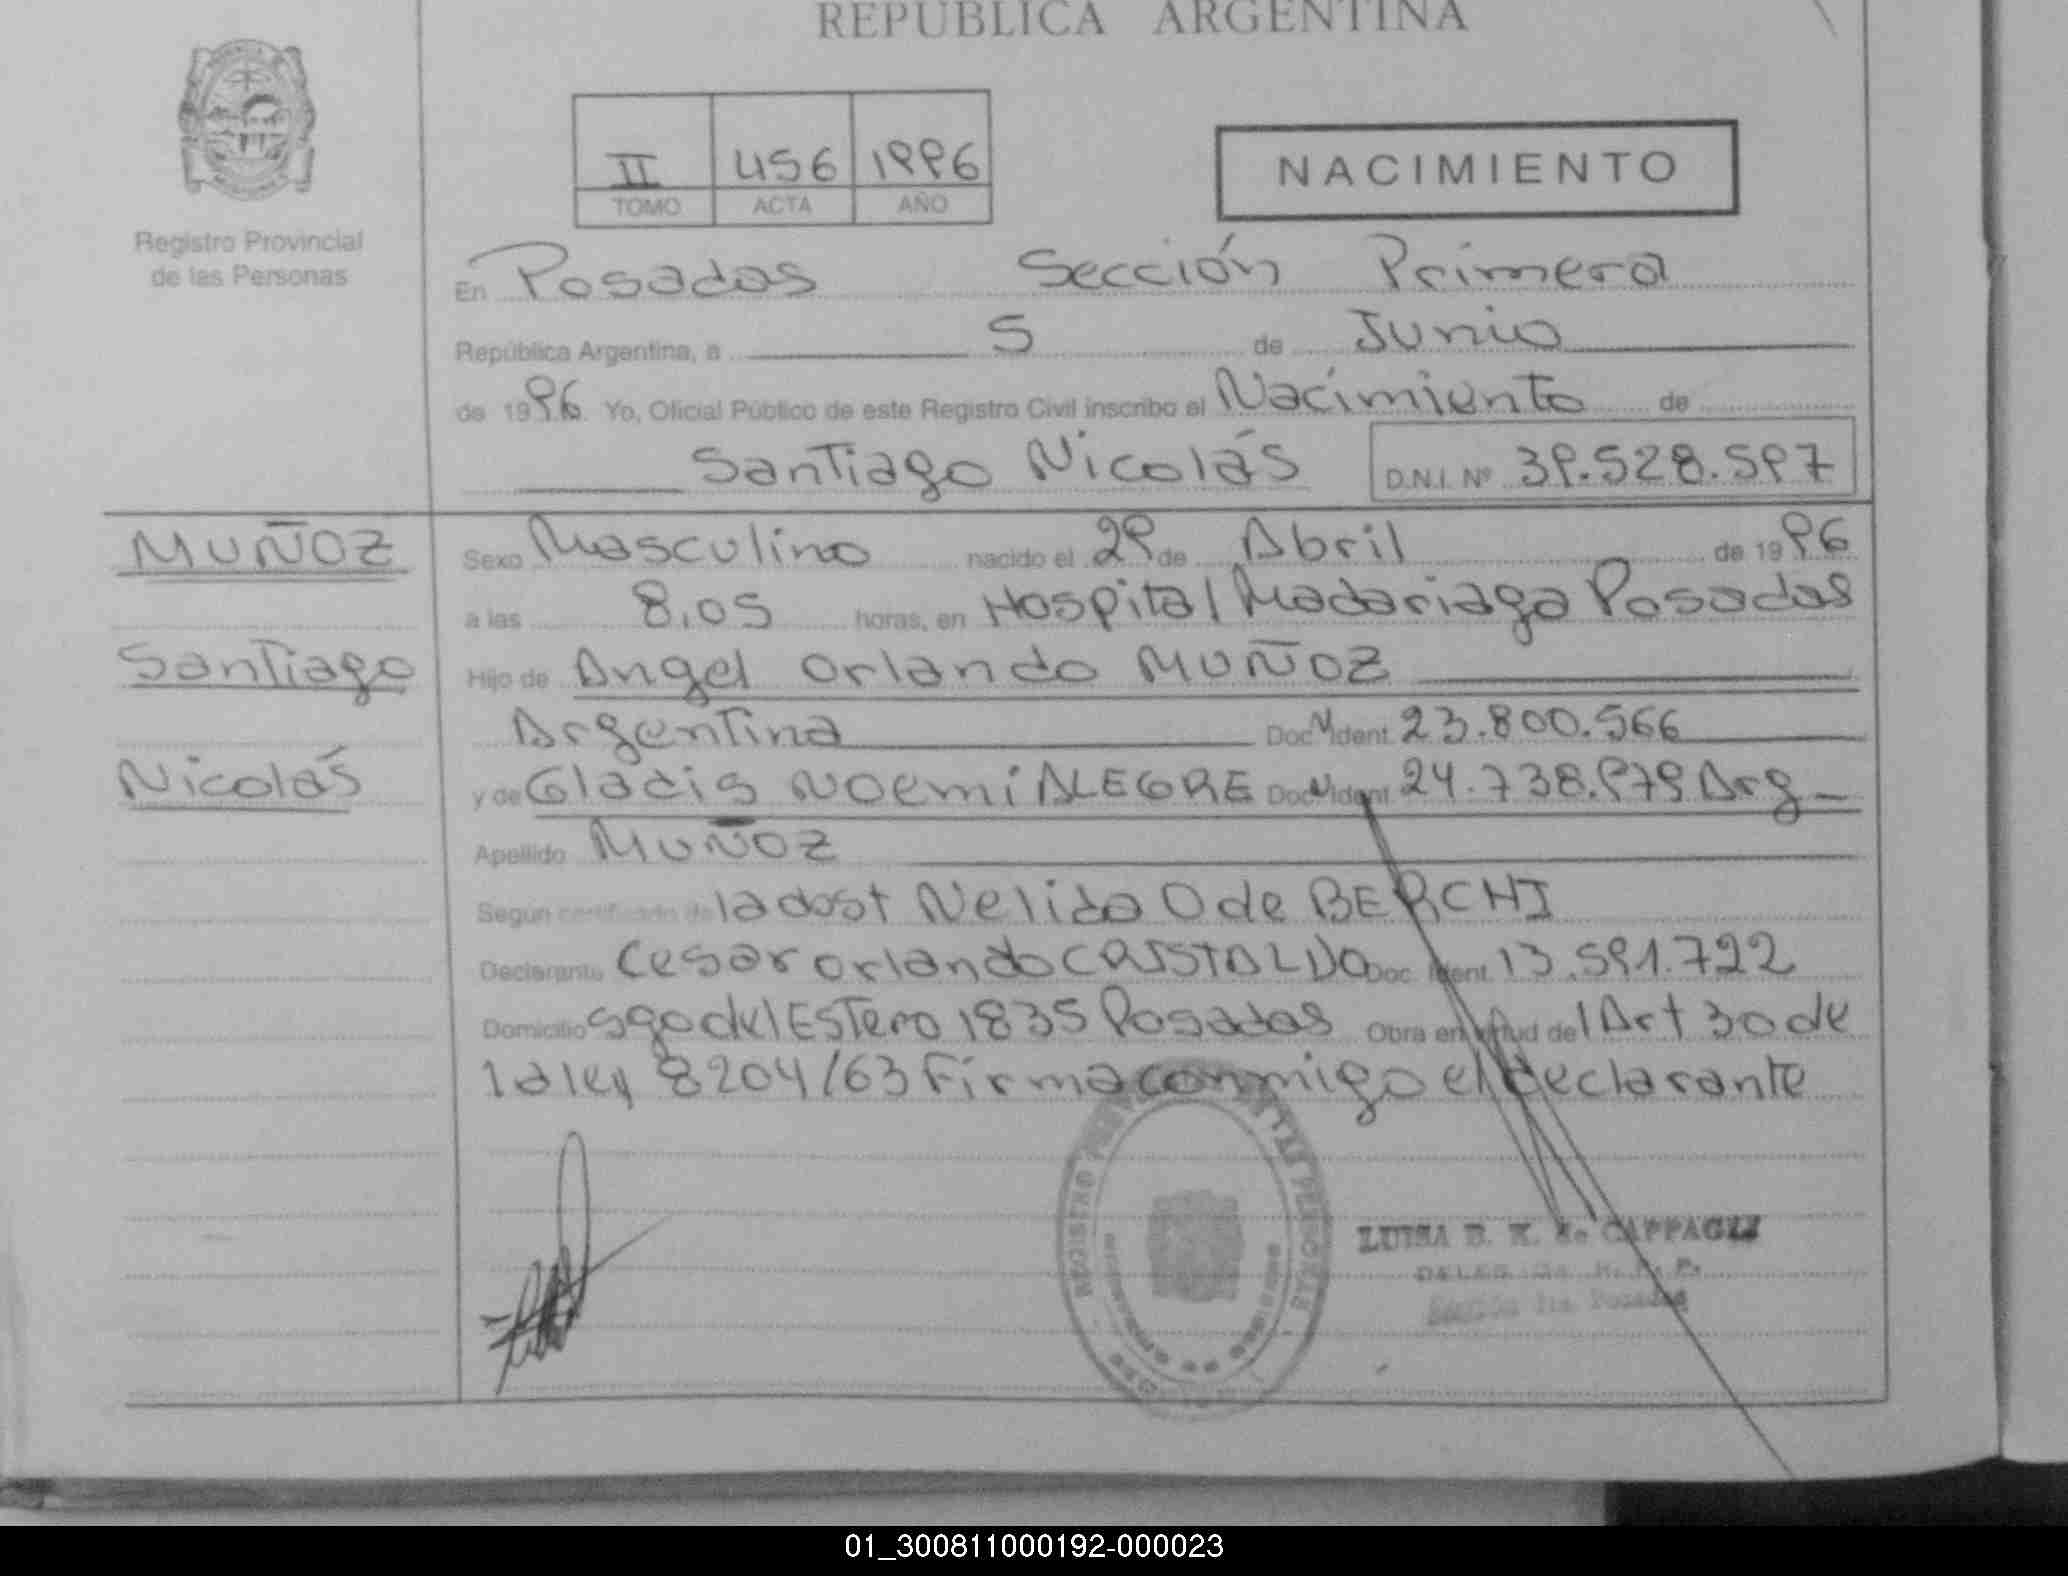 REPUBLICA ARGENTINA
II 456 1996
TOMO ACTA AÑO
NACIMIENTO
Registro Provincial
de las Personas
En Posadas Sección Primera
República Argentina, a 5 de Junio
de 1996 Yo, Oficial Público de este Registro Civil inscribo el Nacimiento de
Santiago Nicolás D.N.I. Nº 39.528.597
MUÑOZ
Santiago
Nicolás
Sexo Masculino nacido el 29 de Abril de 1996
a las 8,05 horas, en Hospital Madariaga Posadas
Hijo de Angel Orlando MUÑOZ
Argentina Doc N Ident. 23.800.566
y de Gladis Noemi ALEGRE Doc N Ident 24.738.979 Arg
Apellido MUÑOZ
Según certificado de la obst Nelida O de BERCHI
Declarante Cesar Orlando Doc. Ident. 13.591.722
Domicilio Sgo del Estero 1835 Posadas Obra en virtud del Art 30 de
la ley 8204/63 Firma conmigo el declarante
REGISTRO PERSONAS
LUISA B. K. de
DELEG. R. P. P.
Sección 1ra Posadas
01_300811000192-000023